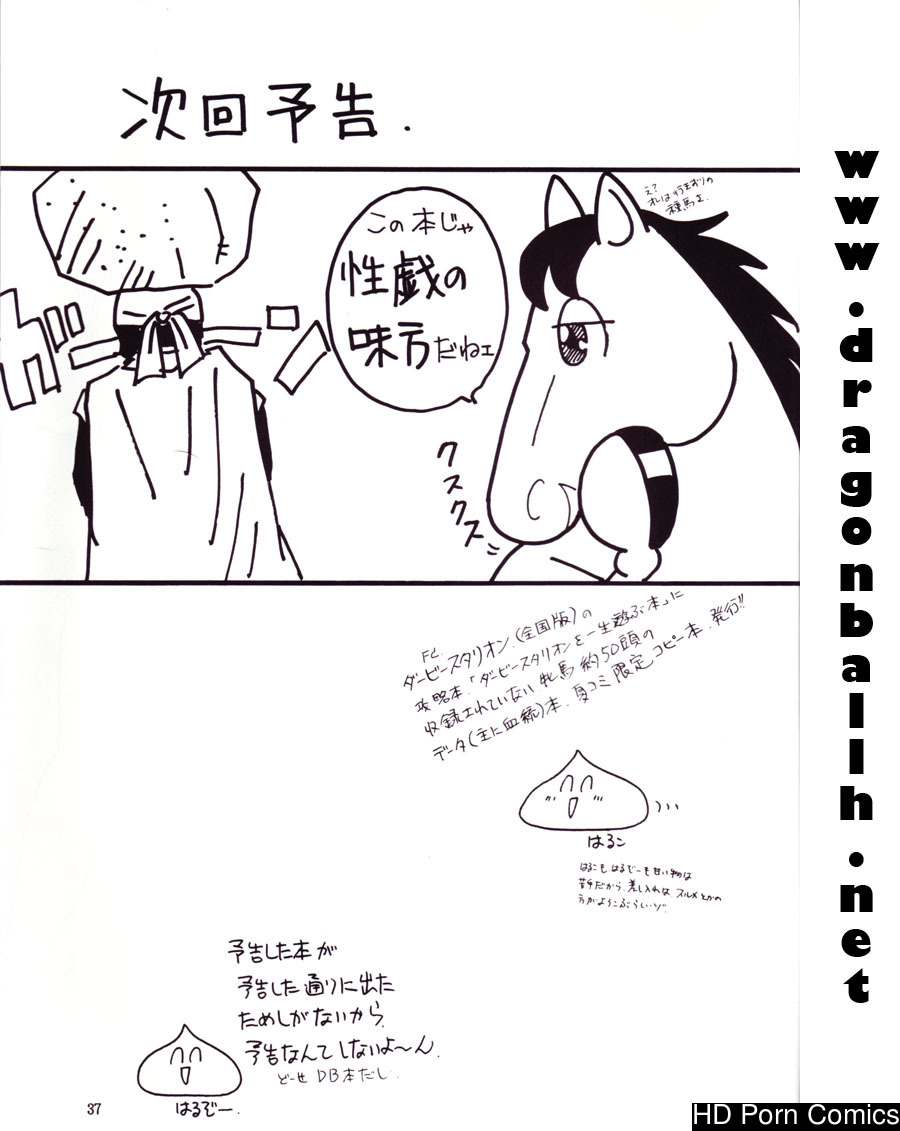 次回予告.
え?
種馬は
この本じゃ
性戯の
味方だねェ
ガガ
クスクス
FC
ダービースタリオン(全国版)の
攻略本.「ダービースタリオンを一生遊ぶ本」に
収録されていない牝馬約50頭の
データ(主に血統)本.夏コミ限定コピー本.発行!!
はるこ
はるこもはるぞーも甘い物は
苦手だから.差し入れは.スルメとかの
方がよろこぶらしいゾ.
予告した本が
予告した通りに出た
ためしがないから.
予告なんてしないよ〜ん.
どーせDB本だし.
はるぞー.
37
www.dragonballh.net
HD Porn Comics